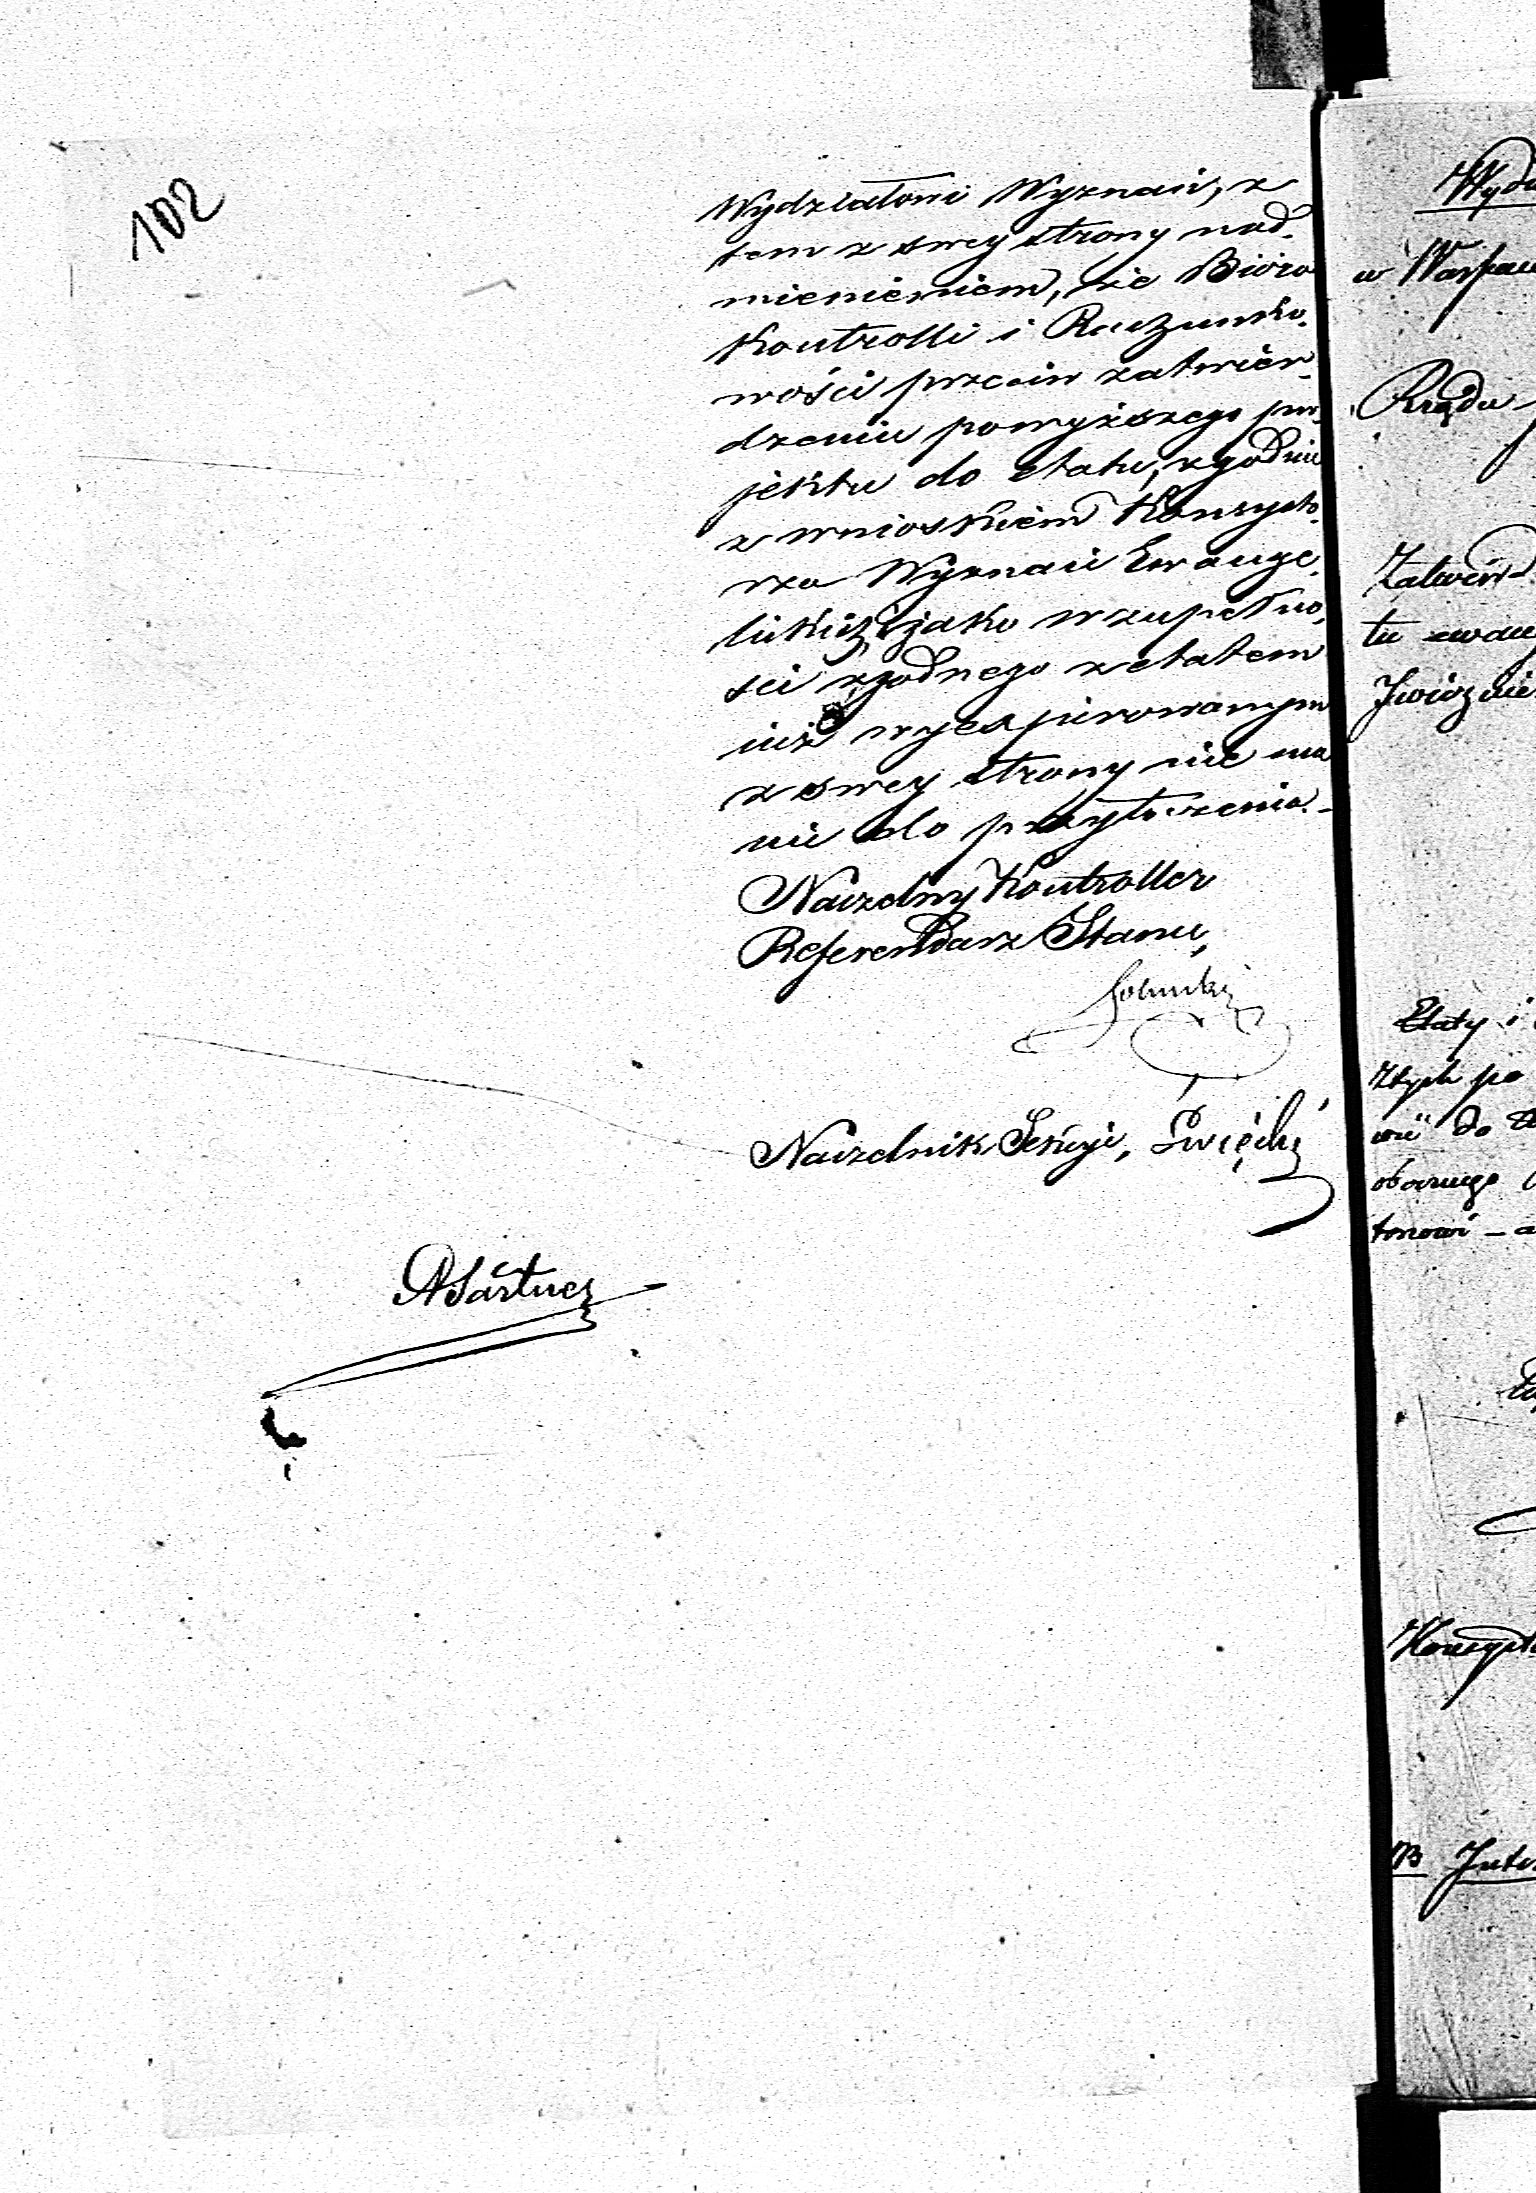 102
Wydziałowi Wyznań, z
tem z swey strony nad-
mienieniem, że Bióro
Kontrolli i Rachunko-
wości przeciw zatwier-
dzeniu powyższego pro-
jektu do etatu, zgodnie
z wnioskiem Konsysto-
rza Wyznań Ewange-
lickich, jako w zupełno-
ści zgodnego z etatem
iuż wyexpirowanym
z swey strony nie ma
nic do przytoczenia.
Naczelny Kontroller
Referendarz Stanu,
Naczelnik Sekcyi, Święcki
Wydz
w Warszaw
Rządu
Zatwierd
tu
Etaty i
do
obecnego
Konsysto